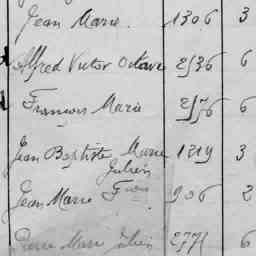 Jean Marie. 1306 3
Alfred Victor Octave 2536 6
François Marie 2576 6
Jean Baptiste Marie 1219 3
Julien
Jean Marie Frois 906 2
Pierre Marie Julien 2771 6